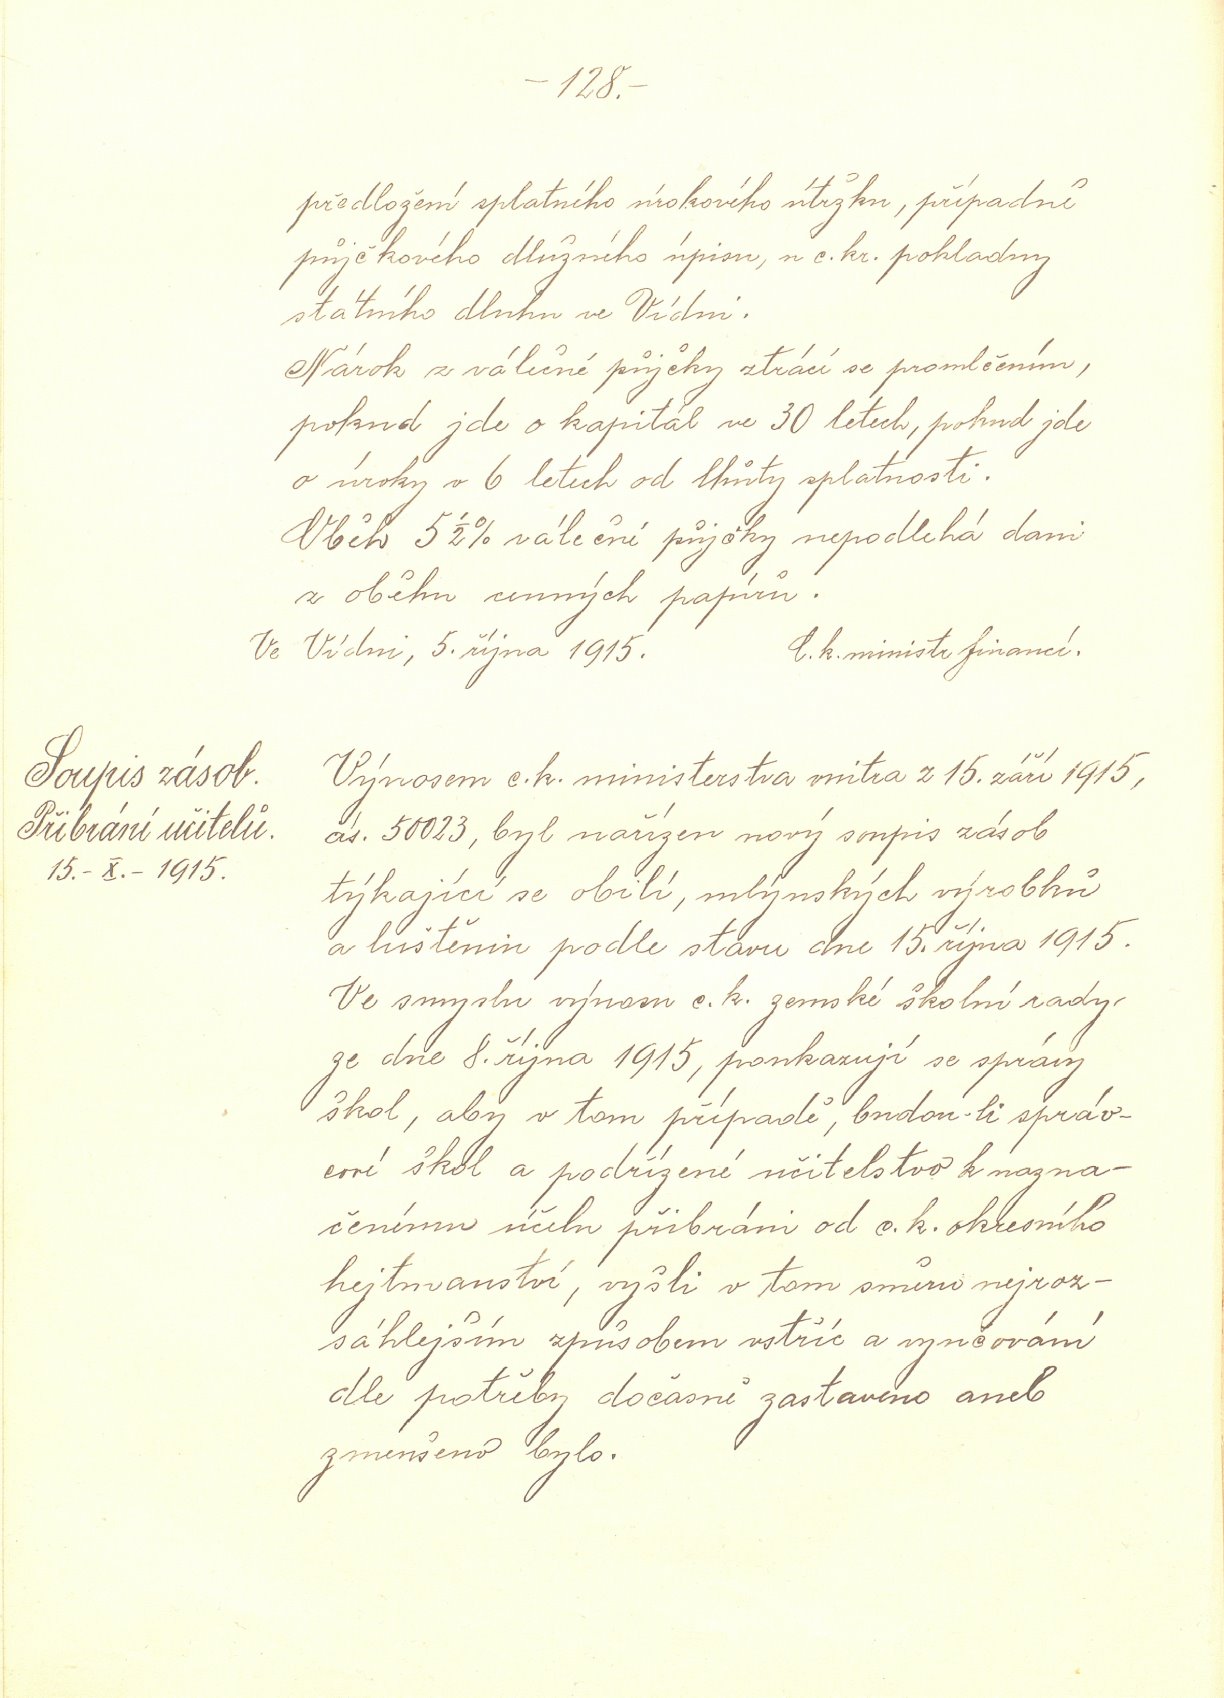 – 128. –
předložení splatného úrokového útržku, případně
půjčkového dlužného úpisu, u c. kr. pokladny
státního dluhu ve Vídni.
Nárok z válečné půjčky ztrácí se promlčením,
pokud jde o kapitál ve 30 létech, pokud jde
o úroky v 6 letech od lhůty splatnosti.
Oběh 5½% válečné půjčky nepodlehá dani
z oběhu cenných papírů.
Ve Vídni, 5. října 1915. C. k. ministr financí.
Soupis zásob.
Přibrání učitelů.
15. – X. – 1915.
Výnosem c. k. ministerstva vnitra z 15. září 1915,
čís. 50023, byl nařízen nový soupis zásob
týkající se obilí, mlýnských výrobků
a luštěnin podle stavu dne 15. října 1915.
Ve smyslu výnosu c. k. zemské školní rady
ze dne 8. října 1915, poukazují se správy
škol, aby v tom případě, budou-li správ-
cové škol a podřízené učitelstvo k nazna-
čenému účelu přibráni od c. k. okresního
hejtmanství, vyšli v tom směru nejroz-
sáhlejším způsobem vstříc a vyučování
dle potřeby dočasně zastaveno aneb
zmenšeno bylo.